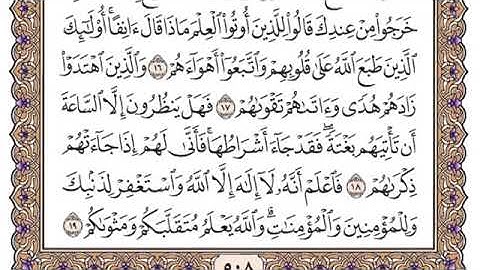 خَرَجُوا۟ مِنْ عِندِكَ قَالُوا۟ لِلَّذِينَ أُوتُوا۟ ٱلْعِلْمَ مَاذَا قَالَ ءَانِفًا ۚ أُو۟لَـٰٓئِكَ
ٱلَّذِينَ طَبَعَ ٱللَّهُ عَلَىٰ قُلُوبِهِمْ وَٱتَّبَعُوٓا۟ أَهْوَآءَهُمْ ١٦ وَٱلَّذِينَ ٱهْتَدَوْا۟
زَادَهُمْ هُدًى وَءَاتَىٰهُمْ تَقْوَىٰهُمْ ١٧ فَهَلْ يَنظُرُونَ إِلَّا ٱلسَّاعَةَ
أَن تَأْتِيَهُم بَغْتَةً ۖ فَقَدْ جَآءَ أَشْرَاطُهَا ۚ فَأَنَّىٰ لَهُمْ إِذَا جَآءَتْهُمْ
ذِكْرَىٰهُمْ ١٨ فَٱعْلَمْ أَنَّهُۥ لَآ إِلَـٰهَ إِلَّا ٱللَّهُ وَٱسْتَغْفِرْ لِذَنۢبِكَ
وَلِلْمُؤْمِنِينَ وَٱلْمُؤْمِنَـٰتِ ۗ وَٱللَّهُ يَعْلَمُ مُتَقَلَّبَكُمْ وَمَثْوَىٰكُمْ ١٩